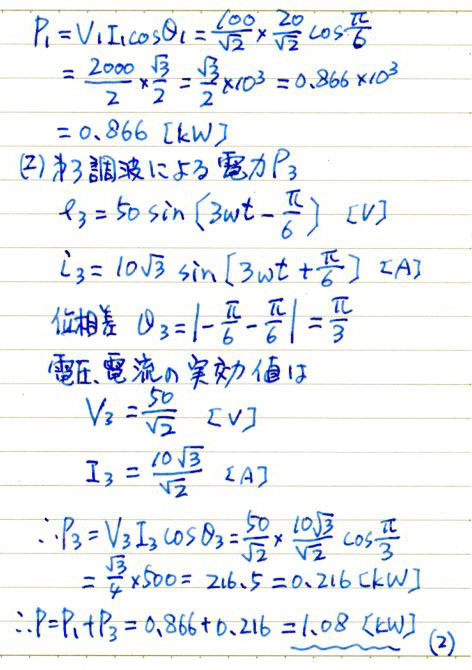 P₁ = V₁I₁cosθ₁ = 100/√2 × 20/√2 cos π/6
= 2000/2 × √3/2 = √3/2 × 10³ = 0.866 × 10³
= 0.866 [kW]
(2) 第3調波による電力P₃
e₃ = 50 sin (3ωt - π/6) [V]
i₃ = 10√3 sin [3ωt + π/6] [A]
位相差 θ₃ = |-π/6 - π/6| = π/3
電圧、電流の実効値は
V₃ = 50/√2 [V]
I₃ = 10√3/√2 [A]
∴P₃ = V₃I₃cosθ₃ = 50/√2 × 10√3/√2 cos π/3
= √3/4 × 500 = 216.5 = 0.216 [kW]
∴P = P₁ + P₃ = 0.866 + 0.216 = 1.08 [kW] (2)